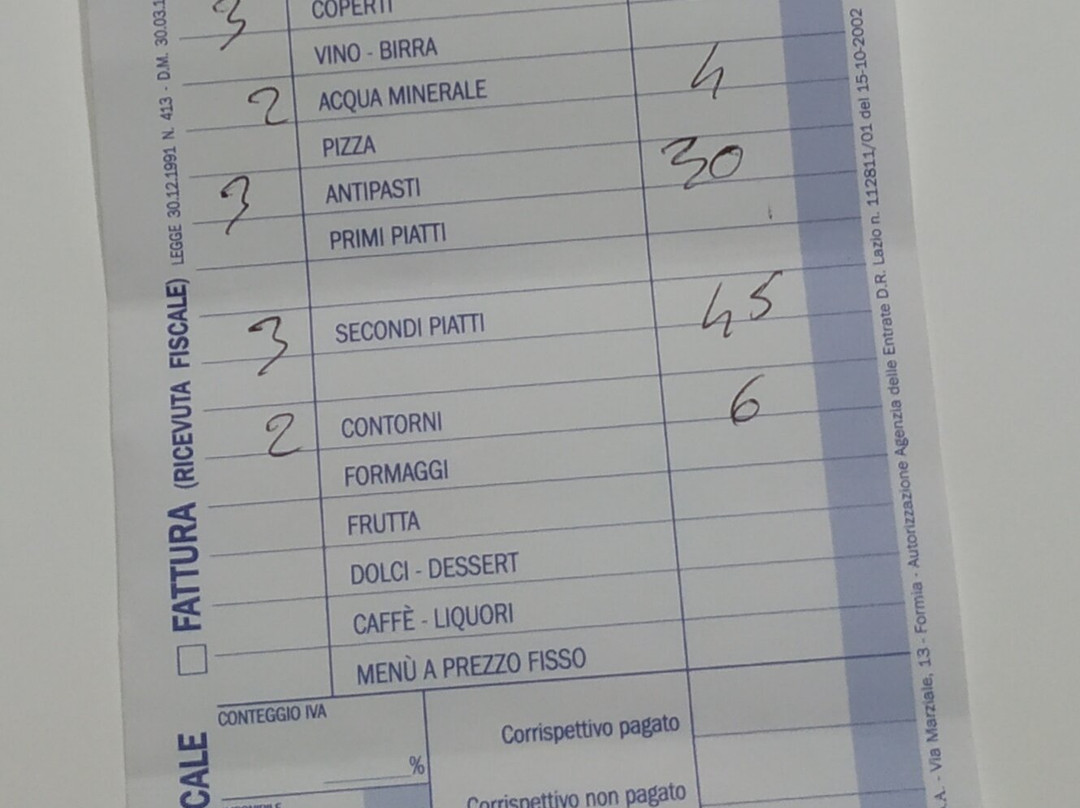 3 COPERTI
VINO - BIRRA
2 ACQUA MINERALE 4
PIZZA
3 ANTIPASTI 30
PRIMI PIATTI
3 SECONDI PIATTI 45
2 CONTORNI 6
FORMAGGI
FRUTTA
DOLCI - DESSERT
CAFFÈ - LIQUORI
MENÙ A PREZZO FISSO
CONTEGGIO IVA
%
Corrispettivo pagato
Corrispettivo non pagato
FATTURA (RICEVUTA FISCALE) LEGGE 30.12.1991 N. 413 - D.M. 30.03.1
CALE
.A. - Via Marziale, 13 - Formia - Autorizzazione Agenzia delle Entrate D.R. Lazio n. 112811/01 del 15-10-2002